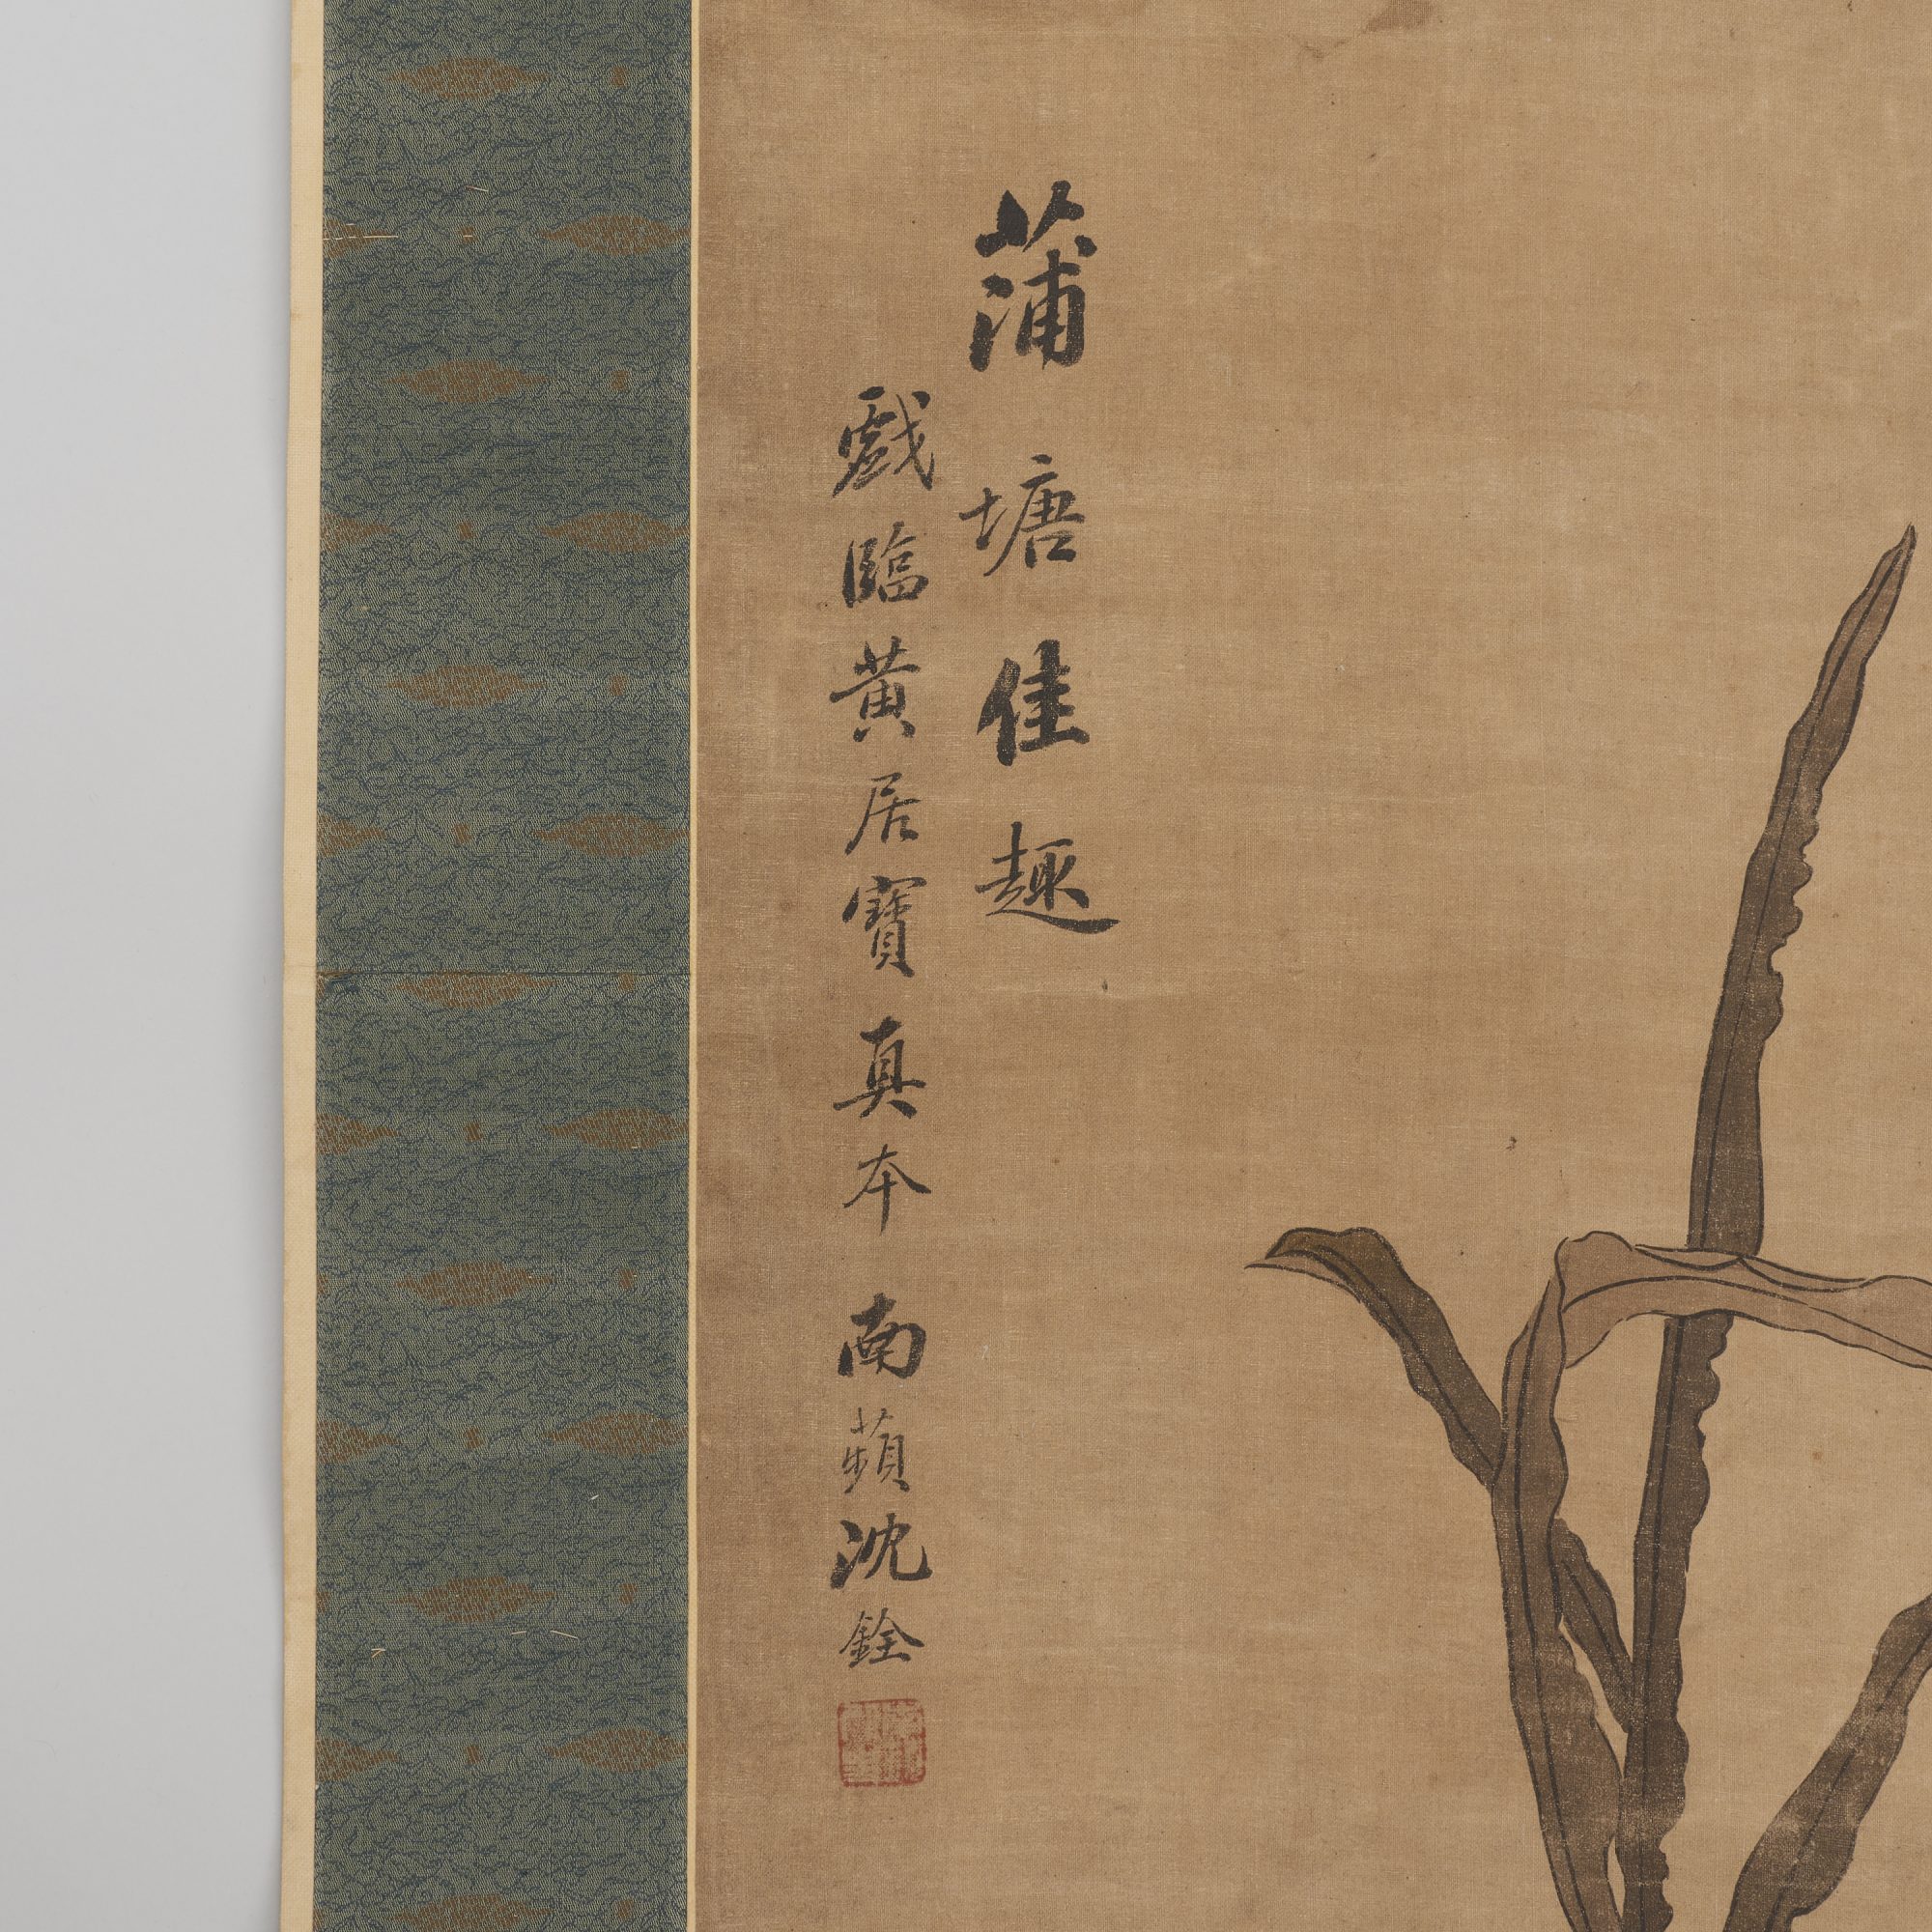 蒲塘佳趣
戲臨黄居寶真本 南蘋沈銓